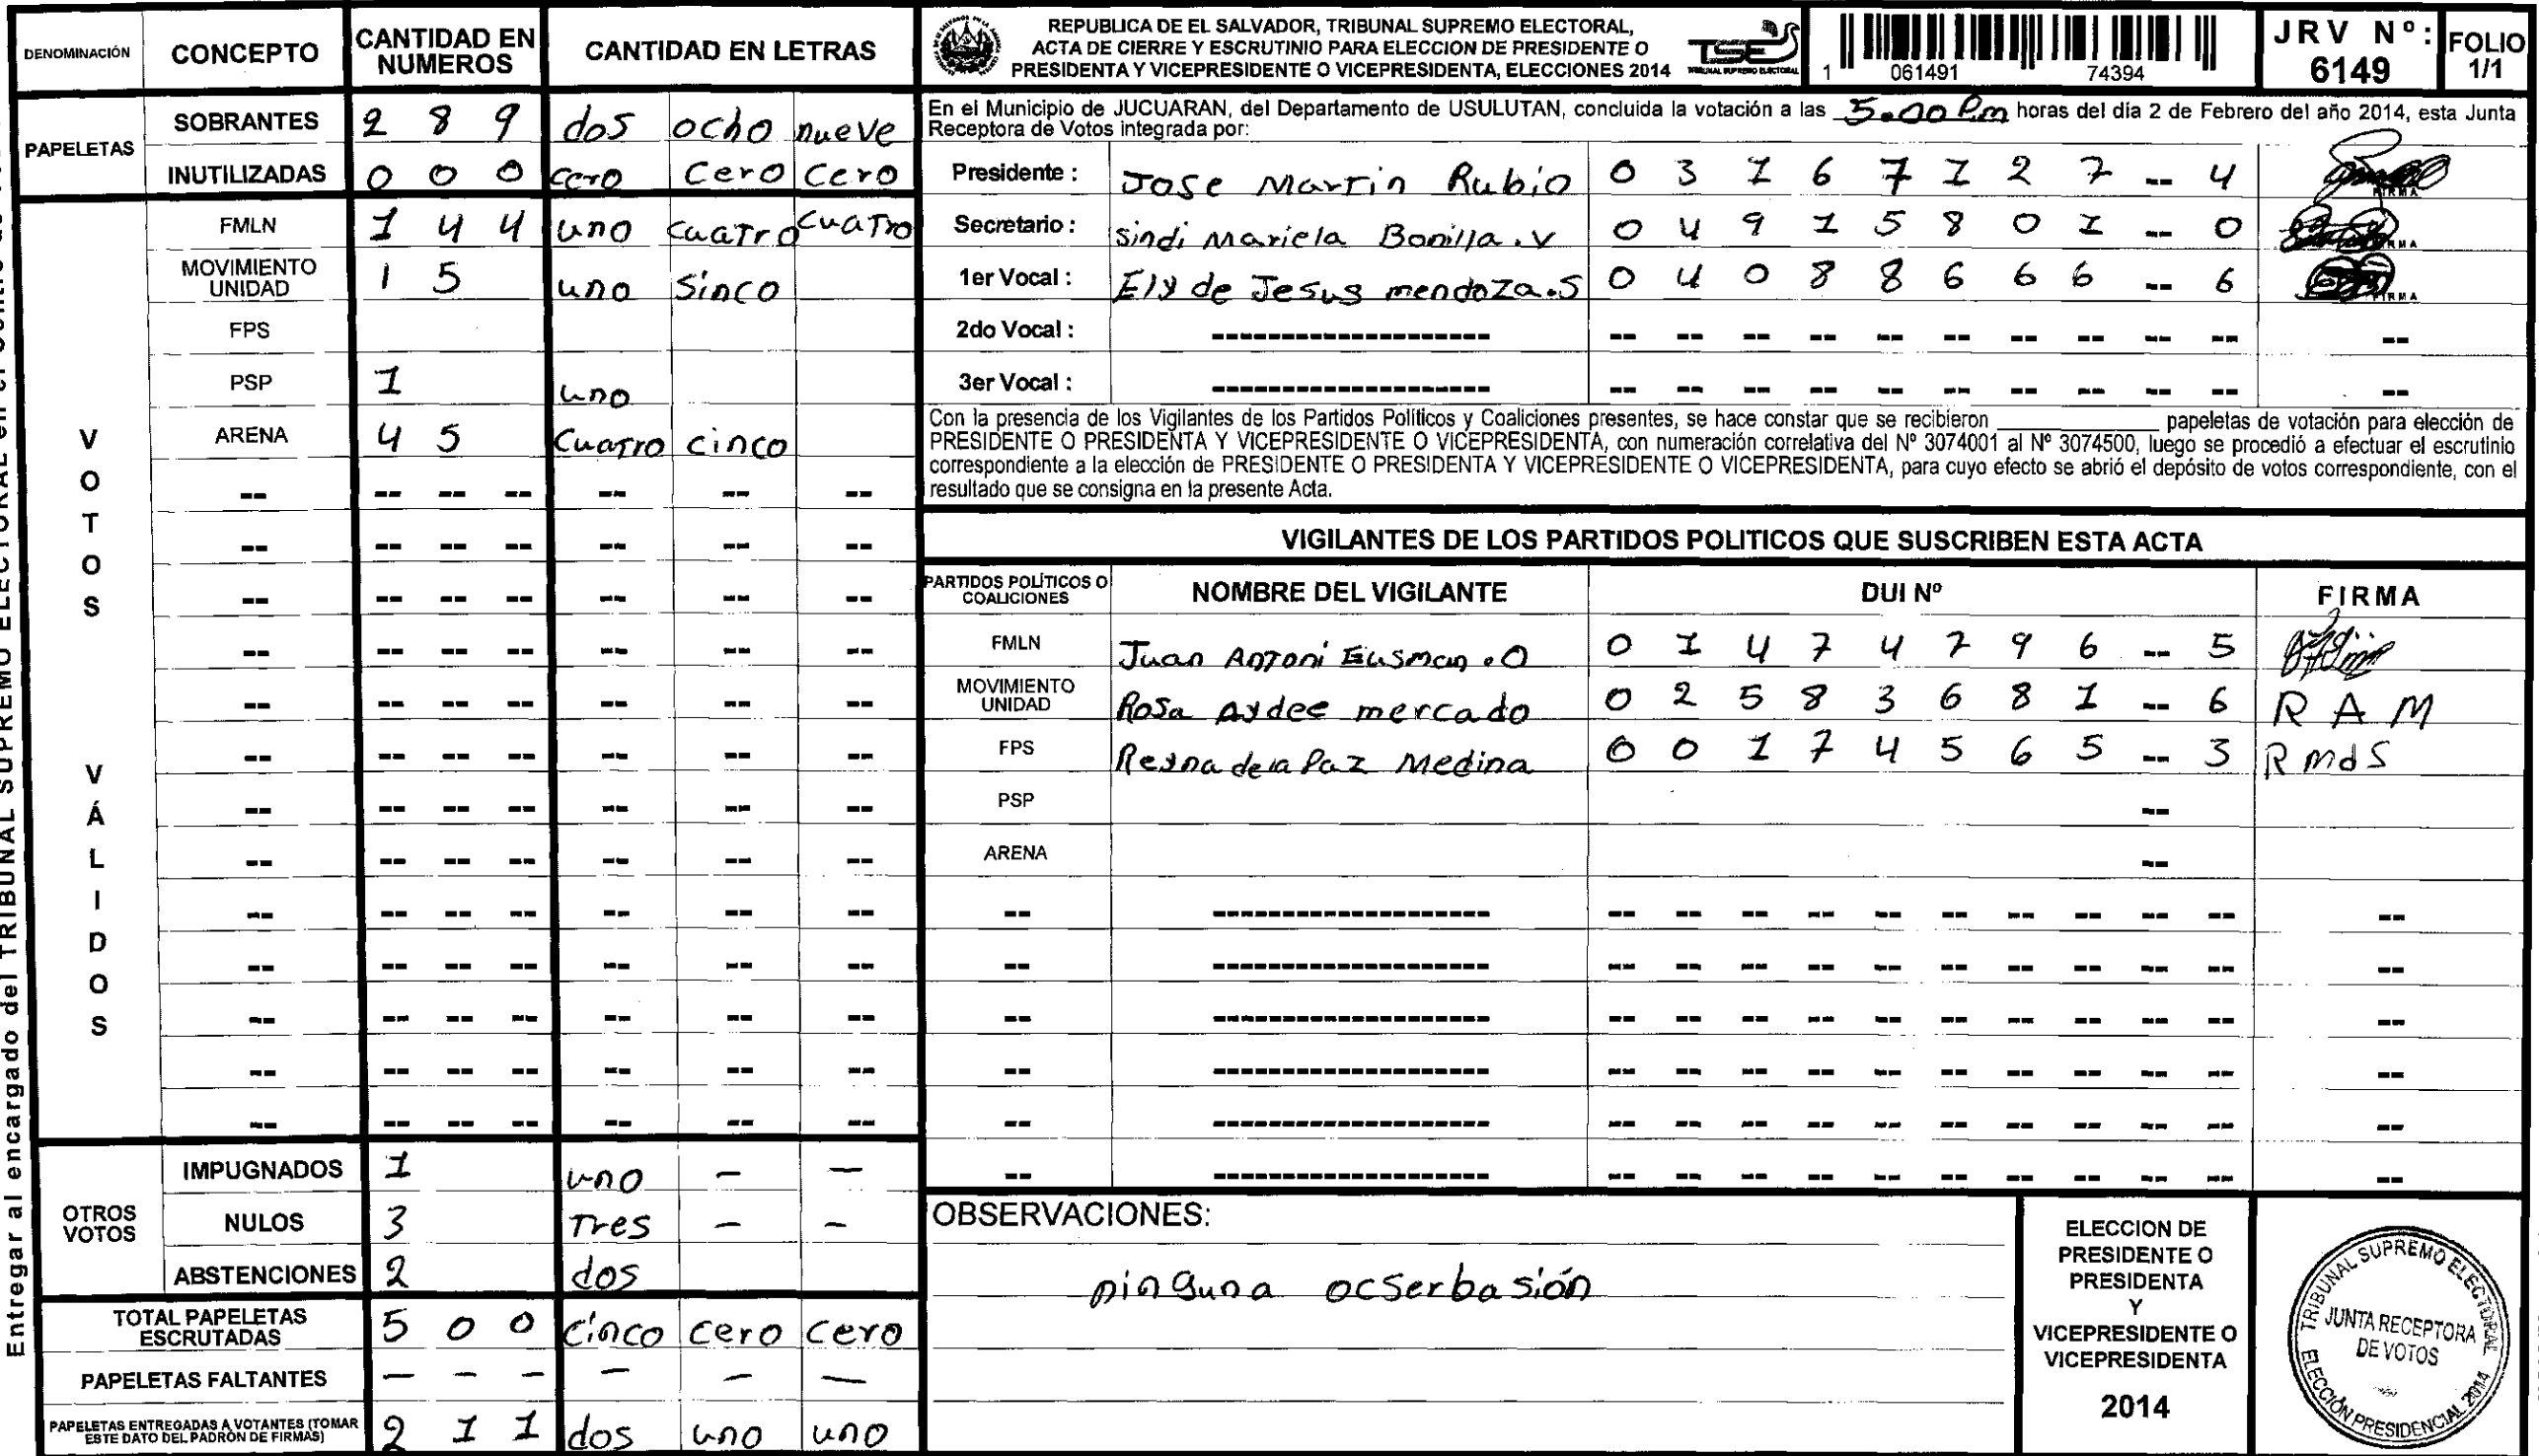 DENOMINACIÓN CONCEPTO CANTIDAD EN NUMEROS CANTIDAD EN LETRAS
PAPELETAS
SOBRANTES 2 8 9 dos ocho nueve
INUTILIZADAS 0 0 0 cero cero cero
VOTOS VÁLIDOS
FMLN 1 4 4 uno cuatro cuatro
MOVIMIENTO UNIDAD 1 5 uno sinco
FPS
PSP 1 uno
ARENA 4 5 cuatro cinco
OTROS VOTOS
IMPUGNADOS 1 uno – –
NULOS 3 Tres – –
ABSTENCIONES 2 dos
TOTAL PAPELETAS ESCRUTADAS 5 0 0 cinco cero cero
PAPELETAS FALTANTES – – – – – –
PAPELETAS ENTREGADAS A VOTANTES (TOMAR ESTE DATO DEL PADRÓN DE FIRMAS) 2 1 1 dos uno uno
REPUBLICA DE EL SALVADOR, TRIBUNAL SUPREMO ELECTORAL,
ACTA DE CIERRE Y ESCRUTINIO PARA ELECCION DE PRESIDENTE O
PRESIDENTA Y VICEPRESIDENTE O VICEPRESIDENTA, ELECCIONES 2014
TSE
TRIBUNAL SUPREMO ELECTORAL
1 061491 74394
JRV Nº: 6149
FOLIO 1/1
En el Municipio de JUCUARAN, del Departamento de USULUTAN, concluida la votación a las 5.00 Pm horas del día 2 de Febrero del año 2014, esta Junta
Receptora de Votos integrada por:
Presidente : Jose Martin Rubio 0 3 1 6 7 1 2 7 -- 4
Secretario : sindi Mariela Bonilla.v 0 4 9 1 5 8 0 1 -- 0
1er Vocal : Ely de Jesus mendoza.S 0 4 0 8 8 6 6 6 -- 6
2do Vocal :
3er Vocal :
Con la presencia de los Vigilantes de los Partidos Políticos y Coaliciones presentes, se hace constar que se recibieron ________ papeletas de votación para elección de
PRESIDENTE O PRESIDENTA Y VICEPRESIDENTE O VICEPRESIDENTA, con numeración correlativa del Nº 3074001 al Nº 3074500, luego se procedió a efectuar el escrutinio
correspondiente a la elección de PRESIDENTE O PRESIDENTA Y VICEPRESIDENTE O VICEPRESIDENTA, para cuyo efecto se abrió el depósito de votos correspondiente, con el
resultado que se consigna en la presente Acta.
VIGILANTES DE LOS PARTIDOS POLITICOS QUE SUSCRIBEN ESTA ACTA
PARTIDOS POLÍTICOS O COALICIONES NOMBRE DEL VIGILANTE DUI Nº FIRMA
FMLN Juan Antoni Gusman.O 0 1 4 7 4 7 9 6 -- 5
MOVIMIENTO UNIDAD Rosa Aydee mercado 0 2 5 8 3 6 8 1 -- 6 R A M
FPS Reyna de la Paz Medina 0 0 1 7 4 5 6 5 -- 3 R M d S
PSP --
ARENA --
OBSERVACIONES:
ninguna ocserbasión
ELECCION DE
PRESIDENTE O
PRESIDENTA
Y
VICEPRESIDENTE O
VICEPRESIDENTA
2014
TRIBUNAL SUPREMO ELECTORAL
JUNTA RECEPTORA
DE VOTOS
ELECCIÓN PRESIDENCIAL 2014
Entregar al encargado del TRIBUNAL SUPREMO ELECTORAL en el